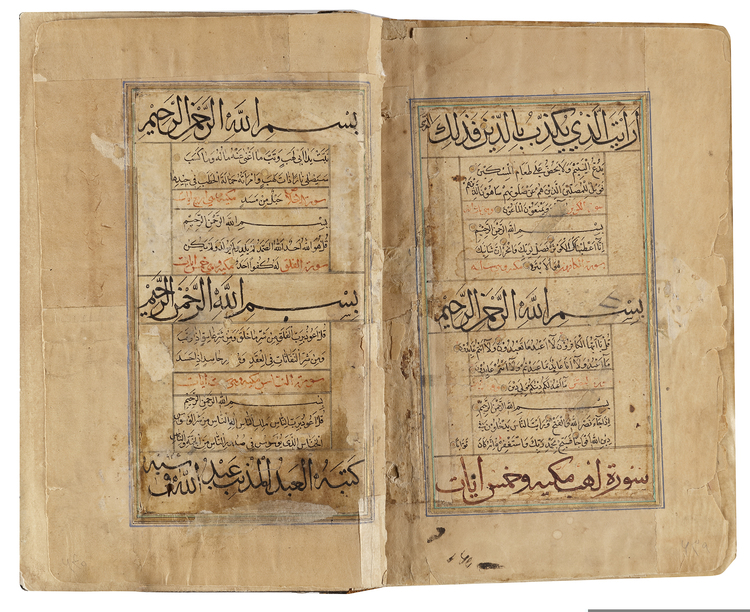 ارايت الذي يكذب بالدين فذلك الذي
يدع اليتيم ولا يحض على طعام المسكين
فويل للمصلين الذين هم عن صلوتهم ساهون الذين هم
ويمنعون الماعون
بسم الله الرحمن الرحيم
انا اعطيناك الكوثر فصل لربك وانحر ان شانئك
هو الابتر سورة الكافرون
بسم الله الرحمن الرحيم
قل يا ايها الكافرون لا اعبد ما تعبدون ولا انتم عابدون
ما اعبد ولا انا عابد ما عبدتم ولا انتم عابدون
ما اعبد لكم دينكم ولي دين
بسم الله الرحمن الرحيم
اذا جاء نصر الله والفتح ورايت الناس يدخلون في
دين الله افواجا فسبح بحمد ربك واستغفره انه كان توابا
سورة لهب مكيه وخمس آيات
بسم الله الرحمن الرحيم
تبت يدا ابي لهب وتب ما اغنى عنه ماله وما كسب
سيصلى نارا ذات لهب وامراته حمالة الحطب في جيدها
حبل من مسد سورة
بسم الله الرحمن الرحيم
قل هو الله احد الله الصمد لم يلد ولم يولد ولم يكن
له كفوا احد سورة الفلق مكيه وخمس آيات
بسم الله الرحمن الرحيم
قل اعوذ برب الفلق من شر ما خلق ومن شر غاسق اذا وقب
ومن شر النفاثات في العقد ومن شر حاسد اذا حسد
سورة الناس مكيه آيات
بسم الله الرحمن الرحيم
قل اعوذ برب الناس ملك الناس اله الناس من شر الوسواس
الخناس الذي يوسوس في صدور الناس من الجنة والناس
كتبه العبد المذنب عبد الله سنه